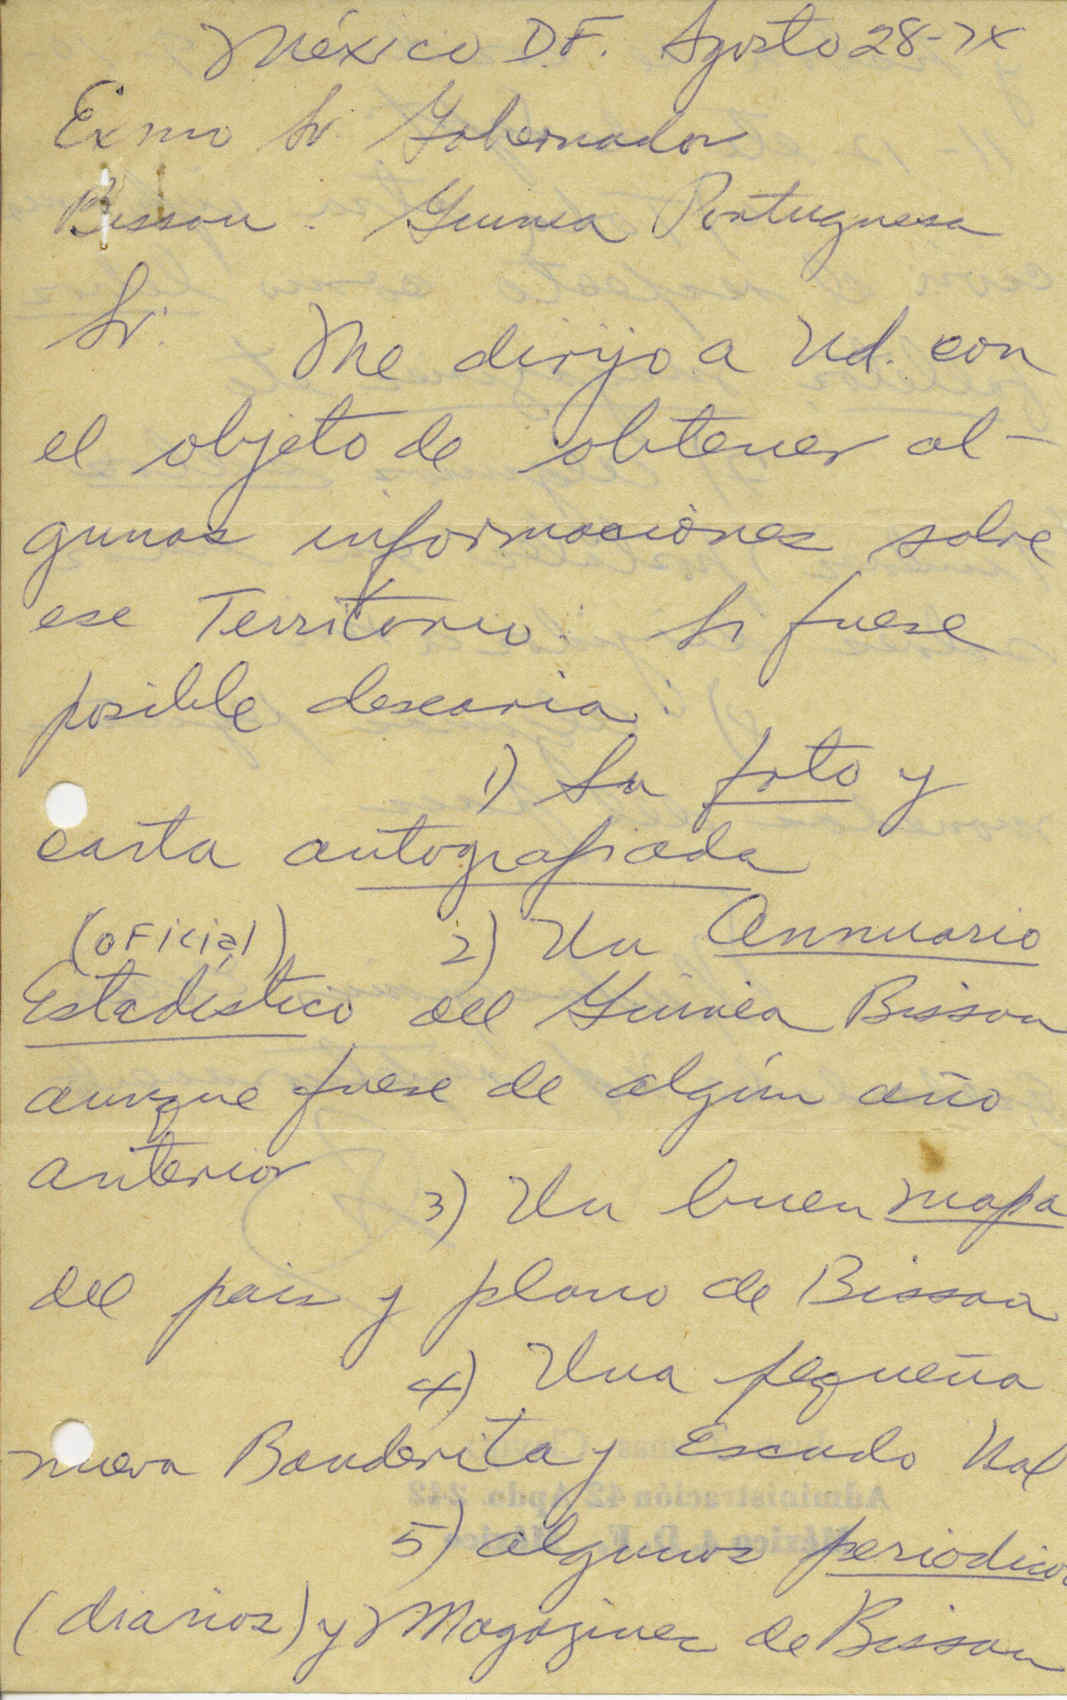 México D.F. Agosto 28-74
Exmo Sr. Gobernador
Bissau. Guinea Portuguesa
Sr. Me dirijo a Ud. con
el objeto de obtener al-
gunas informaciones sobre
ese Territorio. Si fuese
posible desearia:
1) Su foto y
carta autografiada
(oficial) 2) Un Annuario
Estadístico del Guinea Bissau
aunque fuese de algún año
anterior
3) Un buen mapa
del pais y plano de Bissau
4) Una pequeña
nueva Banderita y Escudo Nal
5) algunos periodicos
(diarios) y Magazines de Bissau